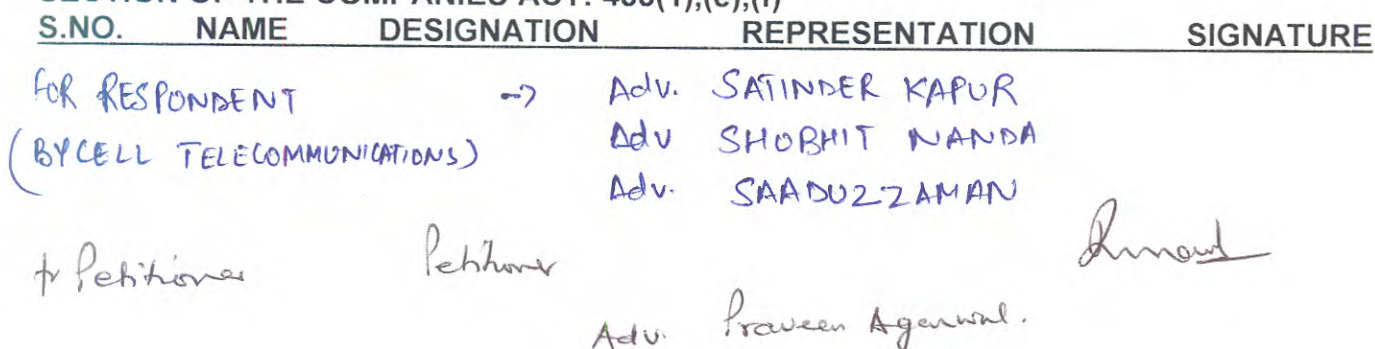 S.NO. NAME DESIGNATION REPRESENTATION SIGNATURE
FOR RESPONDENT -> Adv. SATINDER KAPUR
(BYCELL TELECOMMUNICATIONS) Adv SHOBHIT NANDA
Adv. SAADUZZAMAN
fr Petitioner Petitioner
Adv. Praveen Agarwal.